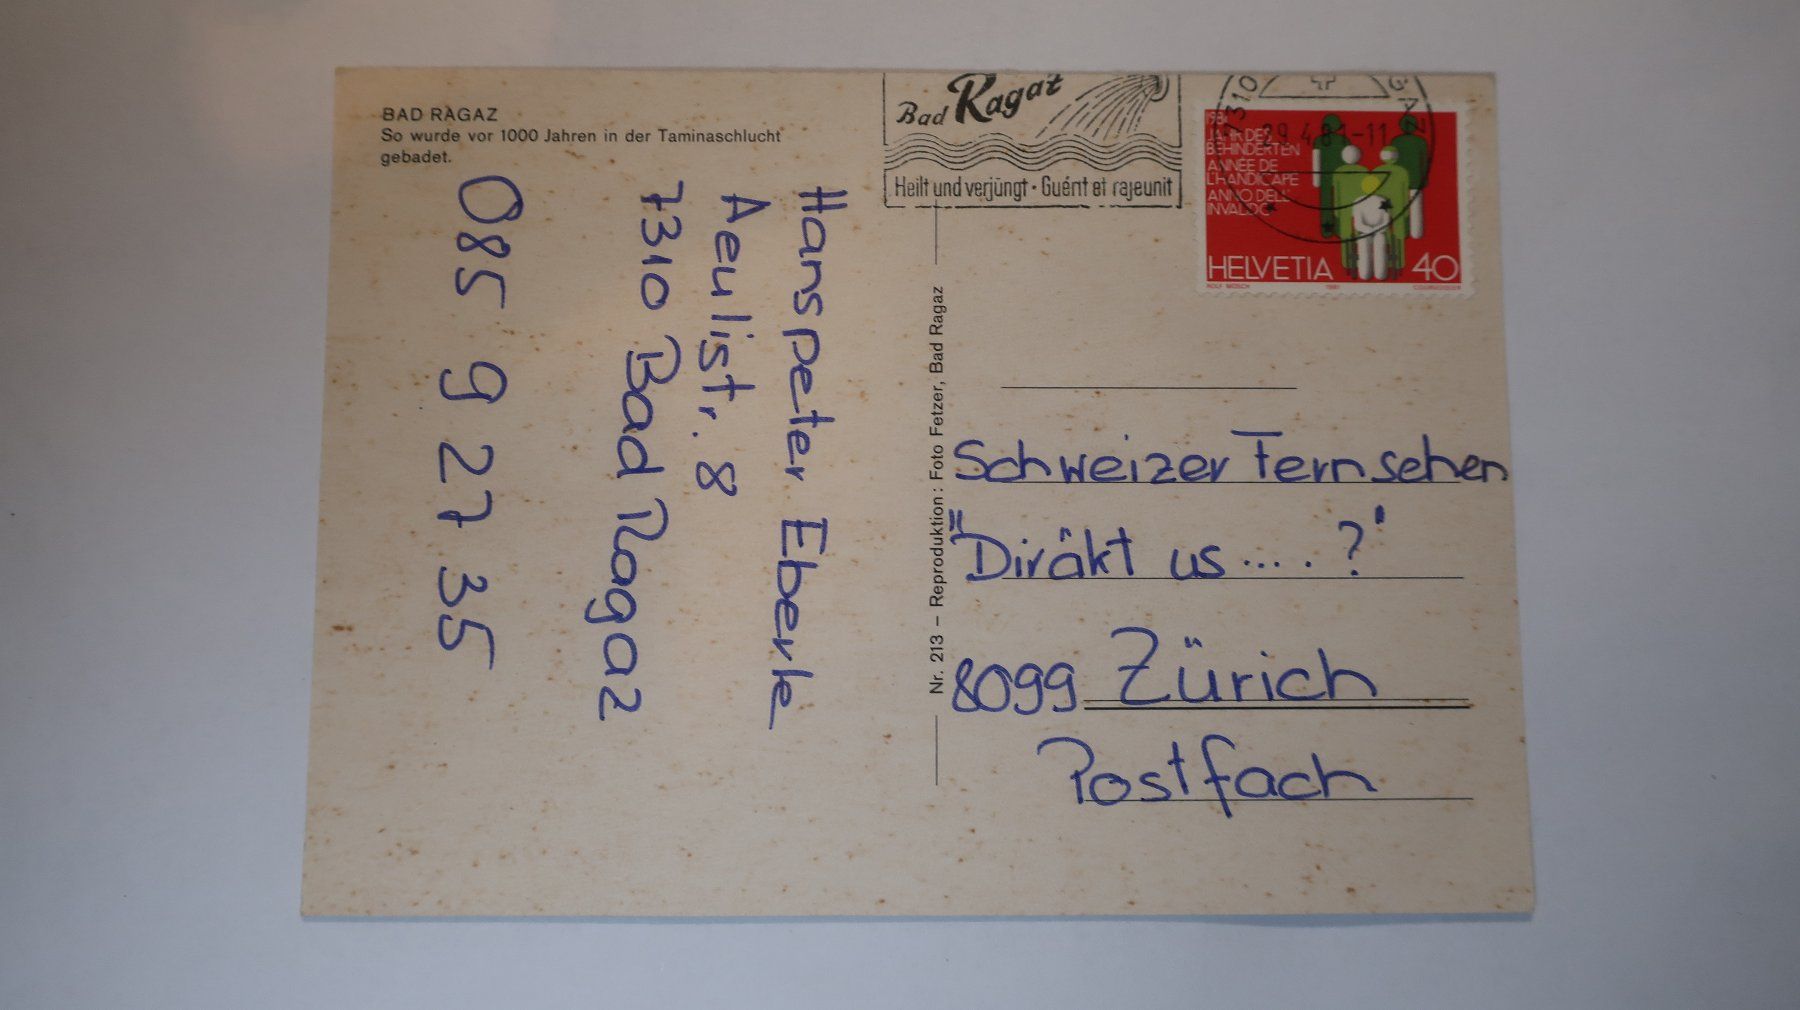 BAD RAGAZ
So wurde vor 1000 Jahren in der Taminaschlucht
gebadet.
Hanspeter Eberle
Aeulistr. 8
7310 Bad Ragaz
085 9 27 35
Nr. 213 – Reproduktion: Foto Fetzer, Bad Ragaz
Bad Ragaz
Heilt und verjüngt · Guérit et rajeunit
7310
29.4.81-11
1981
JAHR DES
BEHINDERTEN
ANNÉE DE
L'HANDICAPÉ
ANNO DELL'
INVALIDO
HELVETIA 40
ROLF MÖSCH 1981 COURVOISIER
Schweizer Fernsehen
"Diräkt us.....?"
8099 Zürich
Postfach